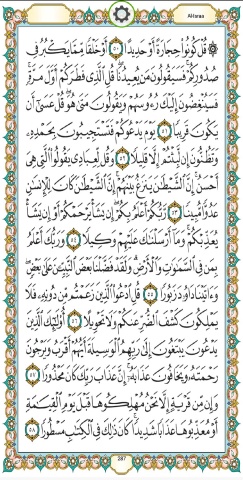 Al-Israa
۞ قُلْ كُونُوا۟ حِجَارَةً أَوْ حَدِيدًا ٥٠ أَوْ خَلْقًا مِّمَّا يَكْبُرُ فِى
صُدُورِكُمْ فَسَيَقُولُونَ مَن يُعِيدُنَا قُلِ ٱلَّذِى فَطَرَكُمْ أَوَّلَ مَرَّةٍ
فَسَيُنْغِضُونَ إِلَيْكَ رُءُوسَهُمْ وَيَقُولُونَ مَتَىٰ هُوَ قُلْ عَسَىٰٓ أَن
يَكُونَ قَرِيبًا ٥١ يَوْمَ يَدْعُوكُمْ فَتَسْتَجِيبُونَ بِحَمْدِهِۦ
وَتَظُنُّونَ إِن لَّبِثْتُمْ إِلَّا قَلِيلًا ٥٢ وَقُل لِّعِبَادِى يَقُولُوا۟ ٱلَّتِى هِىَ
أَحْسَنُ إِنَّ ٱلشَّيْطَٰنَ يَنزَغُ بَيْنَهُمْ إِنَّ ٱلشَّيْطَٰنَ كَانَ لِلْإِنسَٰنِ
عَدُوًّا مُّبِينًا ٥٣ رَّبُّكُمْ أَعْلَمُ بِكُمْ إِن يَشَأْ يَرْحَمْكُمْ أَوْ إِن يَشَأْ
يُعَذِّبْكُمْ وَمَآ أَرْسَلْنَٰكَ عَلَيْهِمْ وَكِيلًا ٥٤ وَرَبُّكَ أَعْلَمُ
بِمَن فِى ٱلسَّمَٰوَٰتِ وَٱلْأَرْضِ وَلَقَدْ فَضَّلْنَا بَعْضَ ٱلنَّبِيِّۦنَ عَلَىٰ بَعْضٍ
وَءَاتَيْنَا دَاوُۥدَ زَبُورًا ٥٥ قُلِ ٱدْعُوا۟ ٱلَّذِينَ زَعَمْتُم مِّن دُونِهِۦ فَلَا
يَمْلِكُونَ كَشْفَ ٱلضُّرِّ عَنكُمْ وَلَا تَحْوِيلًا ٥٦ أُو۟لَٰٓئِكَ ٱلَّذِينَ
يَدْعُونَ يَبْتَغُونَ إِلَىٰ رَبِّهِمُ ٱلْوَسِيلَةَ أَيُّهُمْ أَقْرَبُ وَيَرْجُونَ
رَحْمَتَهُۥ وَيَخَافُونَ عَذَابَهُۥٓ إِنَّ عَذَابَ رَبِّكَ كَانَ مَحْذُورًا ٥٧
وَإِن مِّن قَرْيَةٍ إِلَّا نَحْنُ مُهْلِكُوهَا قَبْلَ يَوْمِ ٱلْقِيَٰمَةِ
أَوْ مُعَذِّبُوهَا عَذَابًا شَدِيدًا كَانَ ذَٰلِكَ فِى ٱلْكِتَٰبِ مَسْطُورًا ٥٨
287